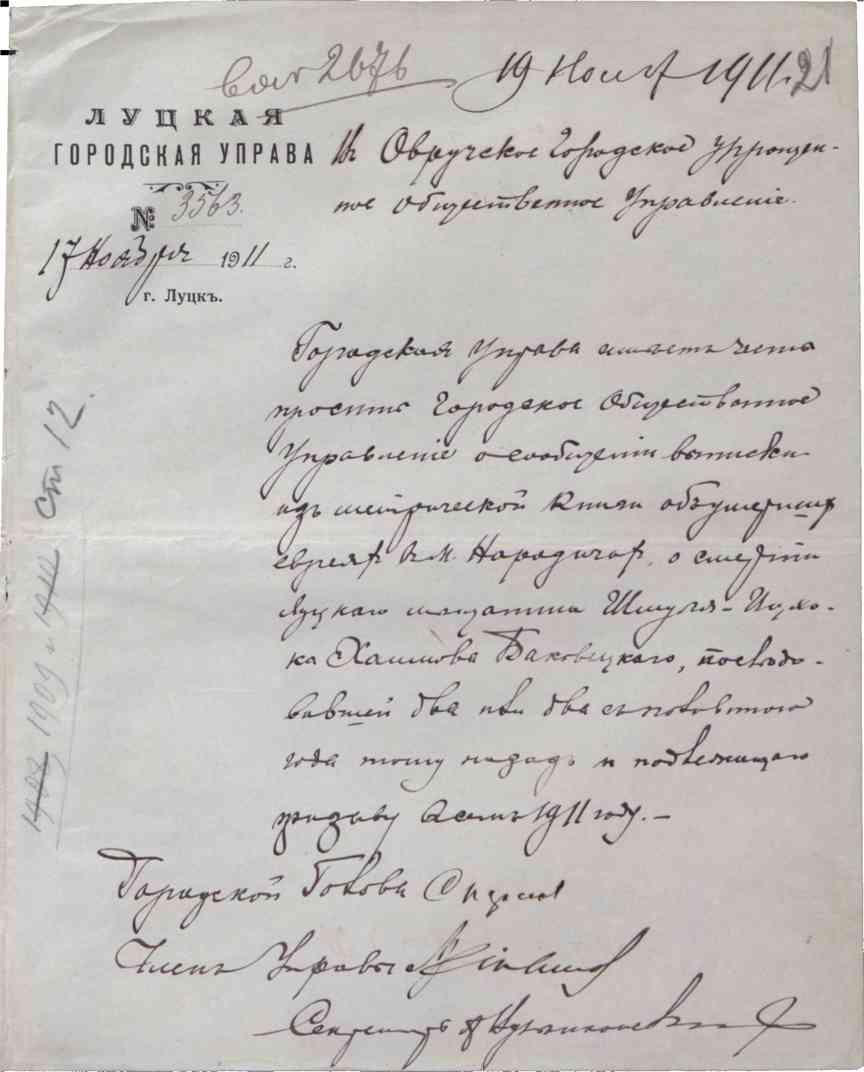 2676
19 Нояб 1911. 21
ЛУЦКАЯ
ГОРОДСКАЯ УПРАВА
№ 3563.
17 Ноября 1911 г.
г. Луцкъ.
Въ Овручское Городское упрощен-
ное общественное Управленіе.
Городская Управа имѣетъ честь
просить Городское Общественное
Управленіе о сообщеніи выписки
изъ метрической книги объ умершихъ
евреяхъ въ м. Народичахъ, о смерти
луцкаго мѣщанина Шмуля-Ицко-
ка Хаимова Баковецкаго, послѣдо-
вавшей два или два съ половиною
года тому назадъ и подлежащаго
призыву въ семъ 1911 году. –
Городской Голова
Членъ Управы
Секретарь
1909 и 1910 ст 12.